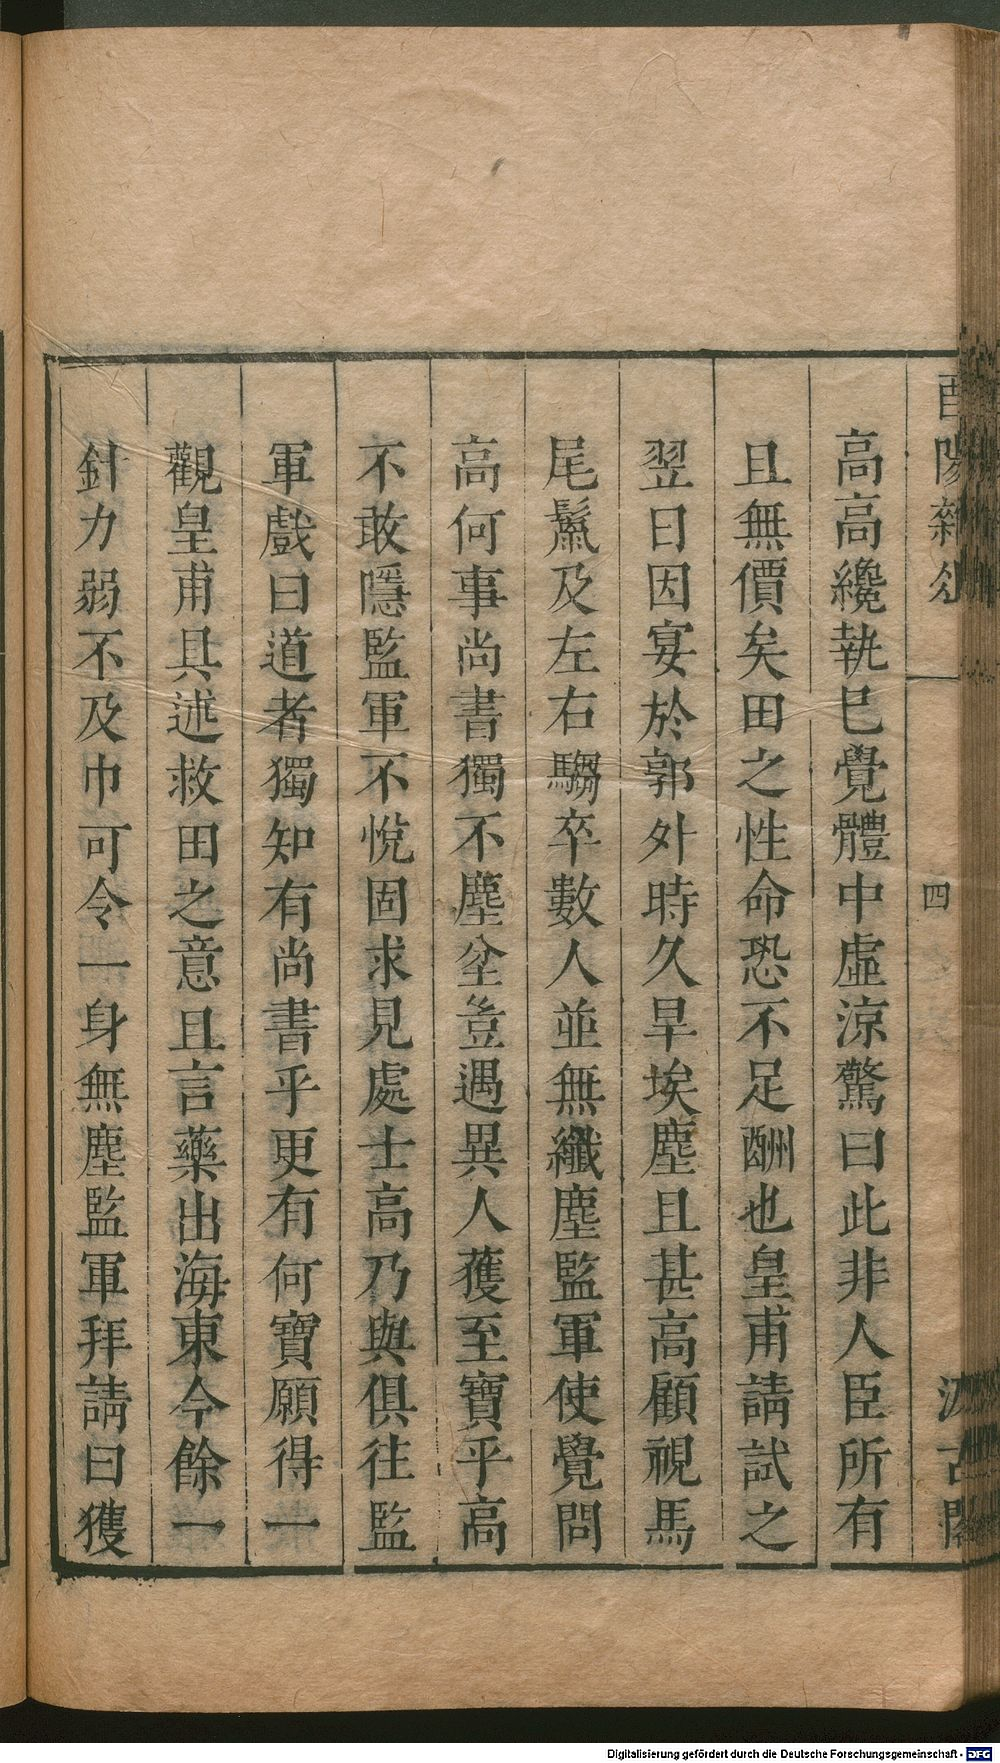 酉陽雜俎
四
汲古閣
高高纔執已覺體中虛涼驚曰此非人臣所有
且無價矣田之性命恐不足酬也皇甫請試之
翌日因宴於郭外時久旱埃塵且甚高顧視馬
尾鬣及左右騶卒數人並無纖塵監軍使覺問
高何事尚書獨不塵坌豈遇異人獲至寶乎高
不敢隱監軍不悅固求見處士高乃與俱往監
軍戲曰道者獨知有尚書乎更有何寶願得一
觀皇甫具述救田之意且言藥出海東今餘一
針力弱不及巾可令一身無塵監軍拜請曰獲
Digitalisierung gefördert durch die Deutsche Forschungsgemeinschaft - DFG